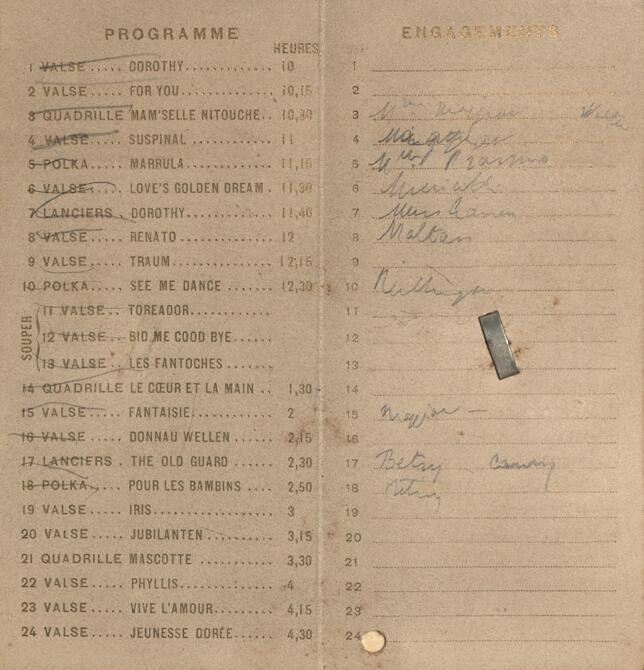 PROGRAMME
HEURES
1 VALSE..... DOROTHY............ 10
2 VALSE..... FOR YOU............ 10,15
3 QUADRILLE MAM'SELLE NITOUCHE.. 10,30
4 VALSE..... SUSPINAL........... 11
5 POLKA..... MARRULA............ 11,15
6 VALSE..... LOVE'S GOLDEN DREAM . 11,30
7 LANCIERS . DOROTHY............ 11,40
8 VALSE..... RENATO............. 12
9 VALSE..... TRAUM.............. 12,15
10 POLKA..... SEE ME DANCE....... 12,30
SOUPER
11 VALSE... TOREADOR...........
12 VALSE... BID ME COOD BYE.....
13 VALSE... LES FANTOCHES.......
14 QUADRILLE LE CŒUR ET LA MAIN .. 1,30
15 VALSE..... FANTAISIE.......... 2
16 VALSE..... DONNAU WELLEN ..... 2,15
17 LANCIERS . THE OLD GUARD ..... 2,30
18 POLKA..... POUR LES BAMBINS .. 2,50
19 VALSE..... IRIS............... 3
20 VALSE..... JUBILANTEN ........ 3,15
21 QUADRILLE MASCOTTE ........... 3,30
22 VALSE..... PHYLLIS............ 4
23 VALSE..... VIVE L'AMOUR....... 4,15
24 VALSE..... JEUNESSE DORÉE..... 4,30
ENGAGEMENTS
1
2
3
4
5
6
7
8 Maltass
9
10
11
12
13
14
15
16
17 Betsy
18
19
20
21
22
23
24